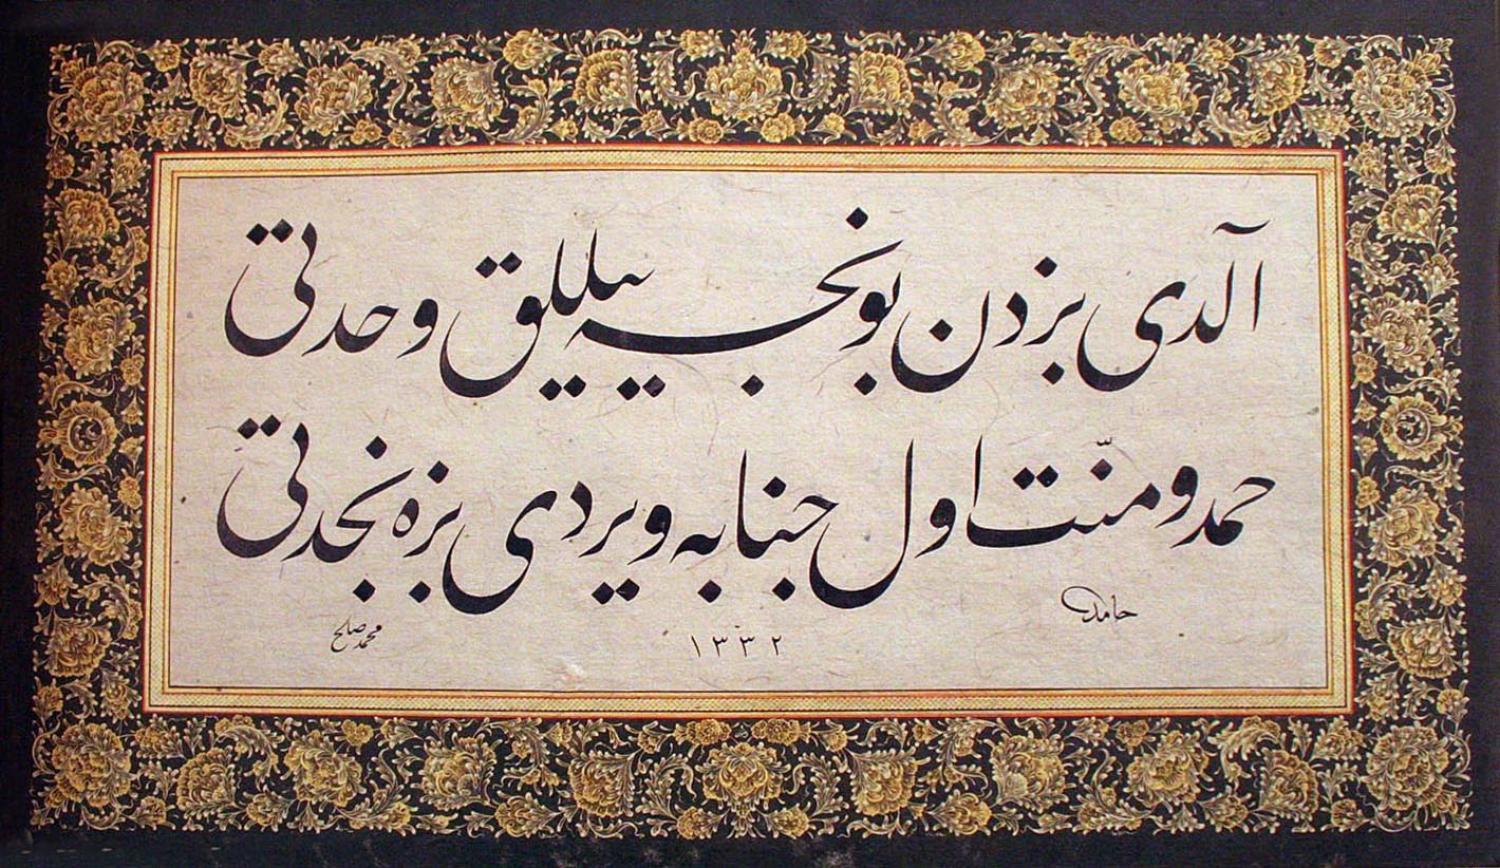 آلدی بزدن بو نجه ییللق وحدتی
حمد و منّت اول جنابه ویردی بزه نجدتی
حامد
١٣٣٢
محمد صلح